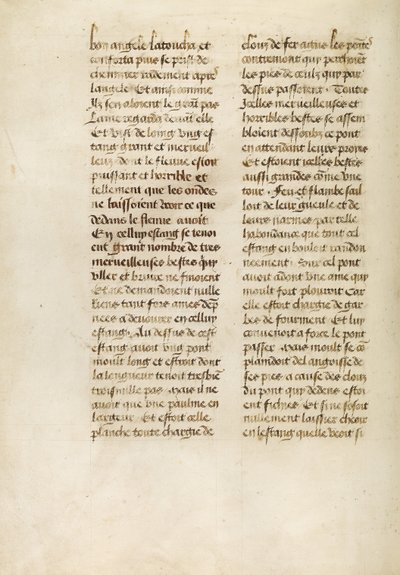 bon angele la toucha et
conforta puis se prist de
cheminer radement apres
langele Et ainsi comme
Ilz sen aloient le grant pas
Lame regarda devant elle
Et vist de loing vng es
tang grant et merveil
leux dont le fleuve estoit
puissant et horrible et
tellement que les ondes
ne laissoient veoir ce que
dedans le fleuve avoit
Et en celluy estang se tenoi
ent grant nombre de tres
merveilleuses bestes quy
vller et braire ne finoient
Et ne demandoient nulle
riens tant fors ames dap
nees a devourer en celluy
estang Au dessus de cest
estang avoit vng pont
moult long et estroit dont
la longueur tenoit tresbien
trois mille pas mais il ne
avoit que vne paulme en
largeur Et estoit celle
planche toute chargie de
clouz de fer agus les pointes
contremont quy perchoient
les pies de ceulz quy par
dessus passoient Toutes
Icelles merveilleuses et
horribles bestes se assem
bloient dessoubz ce pont
en attendant leurs proyes
Et estoient icelles bestes
aussi grandes comme vne
tour Feu et flambe sail
loit de leur gueule et de
leurs narines par telle
habondance que tout cel
estang en bouloit randon
neement Sour cel pont
avoit adont vne ame quy
moult fort plouroit Car
elle estoit chargie de gar
bes de fourment Et luy
convenoit a force le pont
passer mais moult se com
plaindoit del angoisse de
ses pies a cause des clouz
du pont quy dedens estoi
ent fichies Et si ne sosoit
nullement laissier cheoir
en lestang quelle veoit si